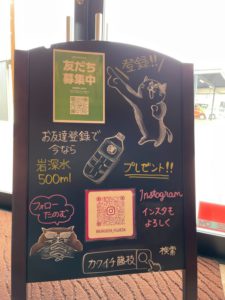 友だち
募集中
登録!!
お友達登録で
今なら
岩深水
500ml
プレゼント!!
フォロー
たのむ
Instagram
インスタも
よろしく
カワイチ藤枝
検索